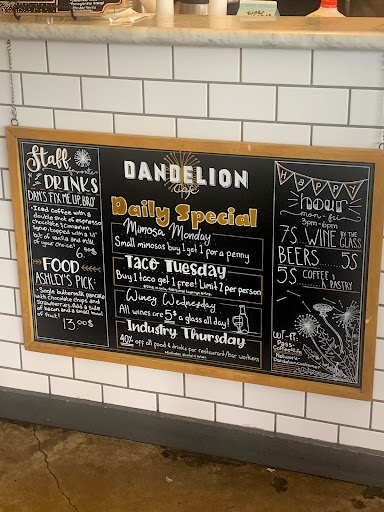 Staff
favorite
DRINKS
DAN'S "FIX ME UP, BRO"
Iced coffee with a
double shot of espresso
Chocolate & Cinnamon
Syrup, topped with a lil'
bit of vodka and milk
of your choice!
6.50$
FOOD
ASHLEY'S PICK:
Single buttermilk pancake
with chocolate chips and
strawberries. Add a side
of bacon and a small bowl
of fruit!
13.00$
DANDELION
Cafe
Daily Special
Mimosa Monday
Small mimosas buy 1 get 1 for a penny
Taco Tuesday
Buy 1 taco get 1 free! Limit 2 per person
Winey Wednesday
All wines are 5$ a glass all day!
Industry Thursday
40% off all food & drinks for restaurant/bar workers
HAPPY
hour
mon-fri
3pm-6pm
7$ WINE BY THE
GLASS
BEERS 5$
5$ COFFEE &
PASTRY
WI-FI:
Pass-
Network-